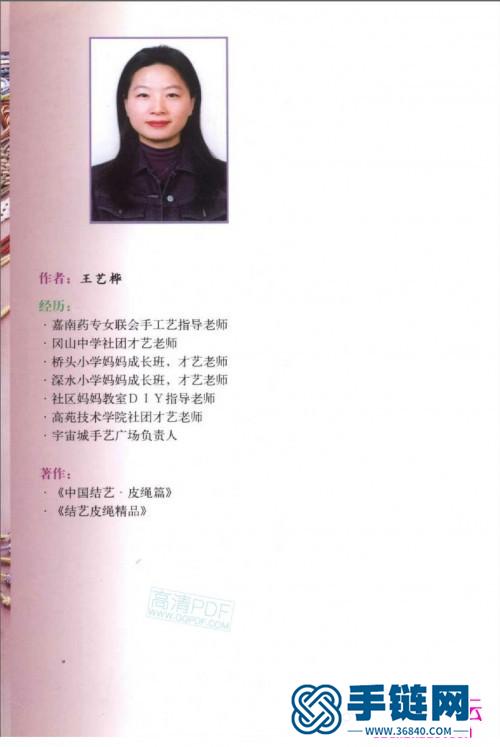 作者：王艺桦
经历：
·嘉南药专女联会手工艺指导老师
·冈山中学社团才艺老师
·桥头小学妈妈成长班，才艺老师
·深水小学妈妈成长班，才艺老师
·社区妈妈教室DIY指导老师
·高苑技术学院社团才艺老师
·宇宙城手艺广场负责人
著作：
·《中国结艺·皮绳篇》
·《结艺皮绳精品》
高清PDF
WWW.GQPDF.COM
手链网
坛
www.36840.com